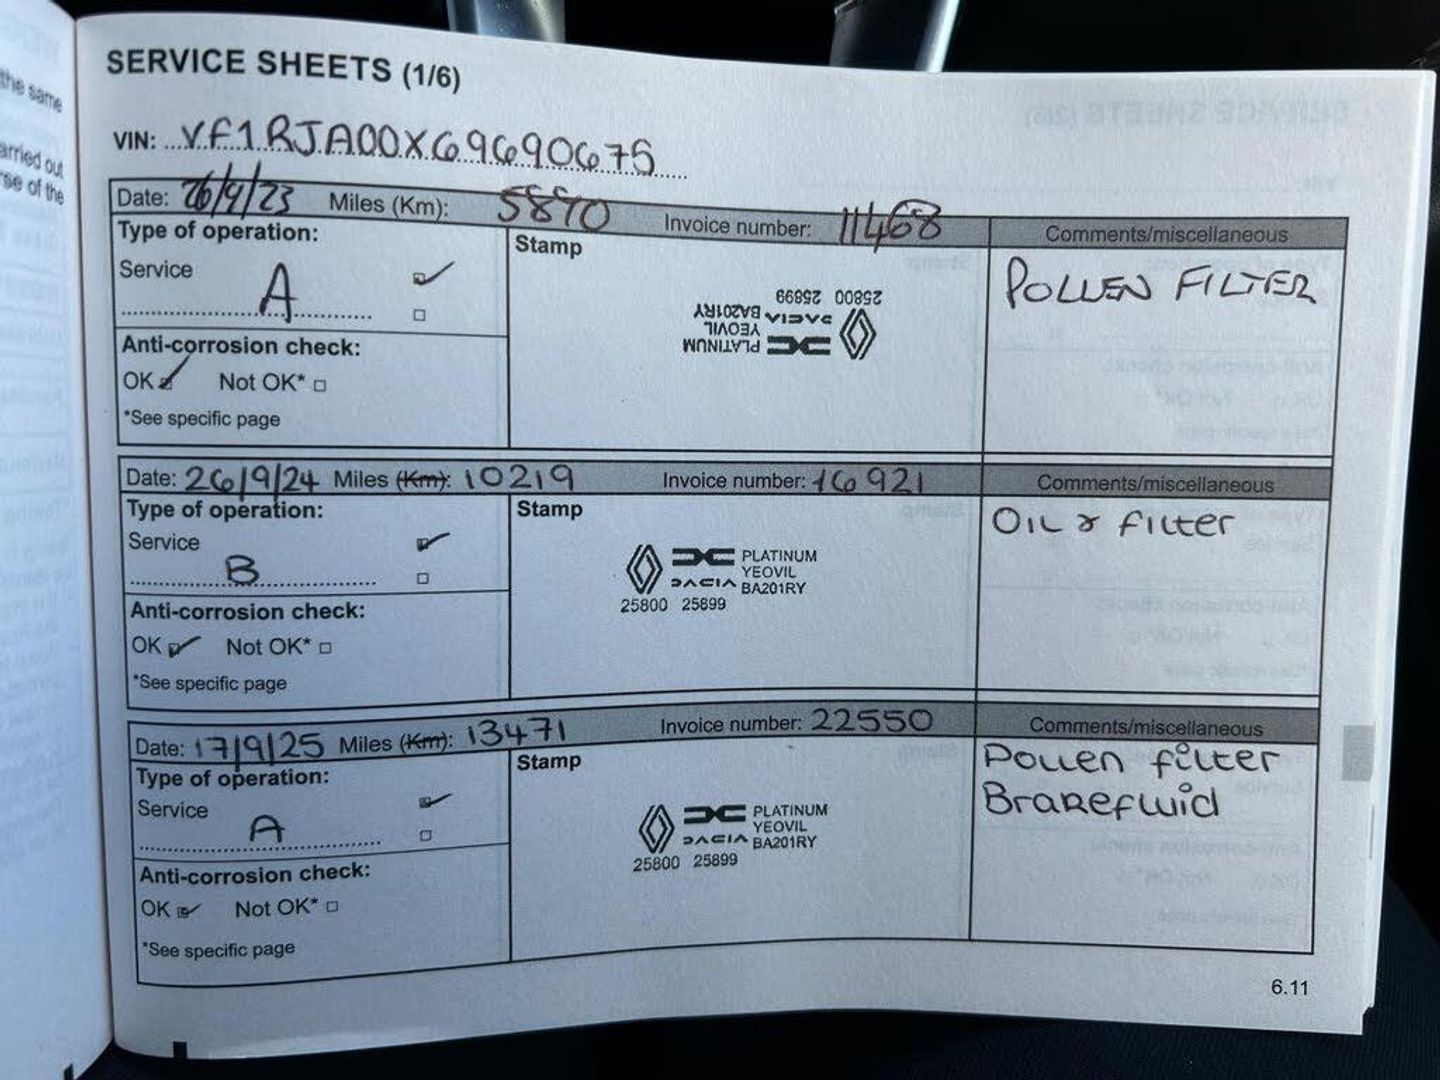 SERVICE SHEETS (1/6)
VIN: VF1RJA00X69690675
Date: 26/9/23 Miles (Km): 5890 Invoice number: 11468 Comments/miscellaneous
Type of operation:
Stamp
Service
A
POLLEN FILTER
25800 25899
DACIA BA201RY
YEOVIL
PLATINUM
Anti-corrosion check:
OK Not OK*
*See specific page
Date: 26/9/24 Miles (Km): 10219 Invoice number: 16921 Comments/miscellaneous
Type of operation:
Stamp
OIL & filter
Service
B
PLATINUM
YEOVIL
DACIA BA201RY
25800 25899
Anti-corrosion check:
OK Not OK*
*See specific page
Date: 17/9/25 Miles (Km): 13471 Invoice number: 22550 Comments/miscellaneous
Type of operation:
Stamp
Pollen filter
Brakefluid
Service
A
PLATINUM
YEOVIL
DACIA BA201RY
25800 25899
Anti-corrosion check:
OK Not OK*
*See specific page
6.11
the same
arried out
se of the